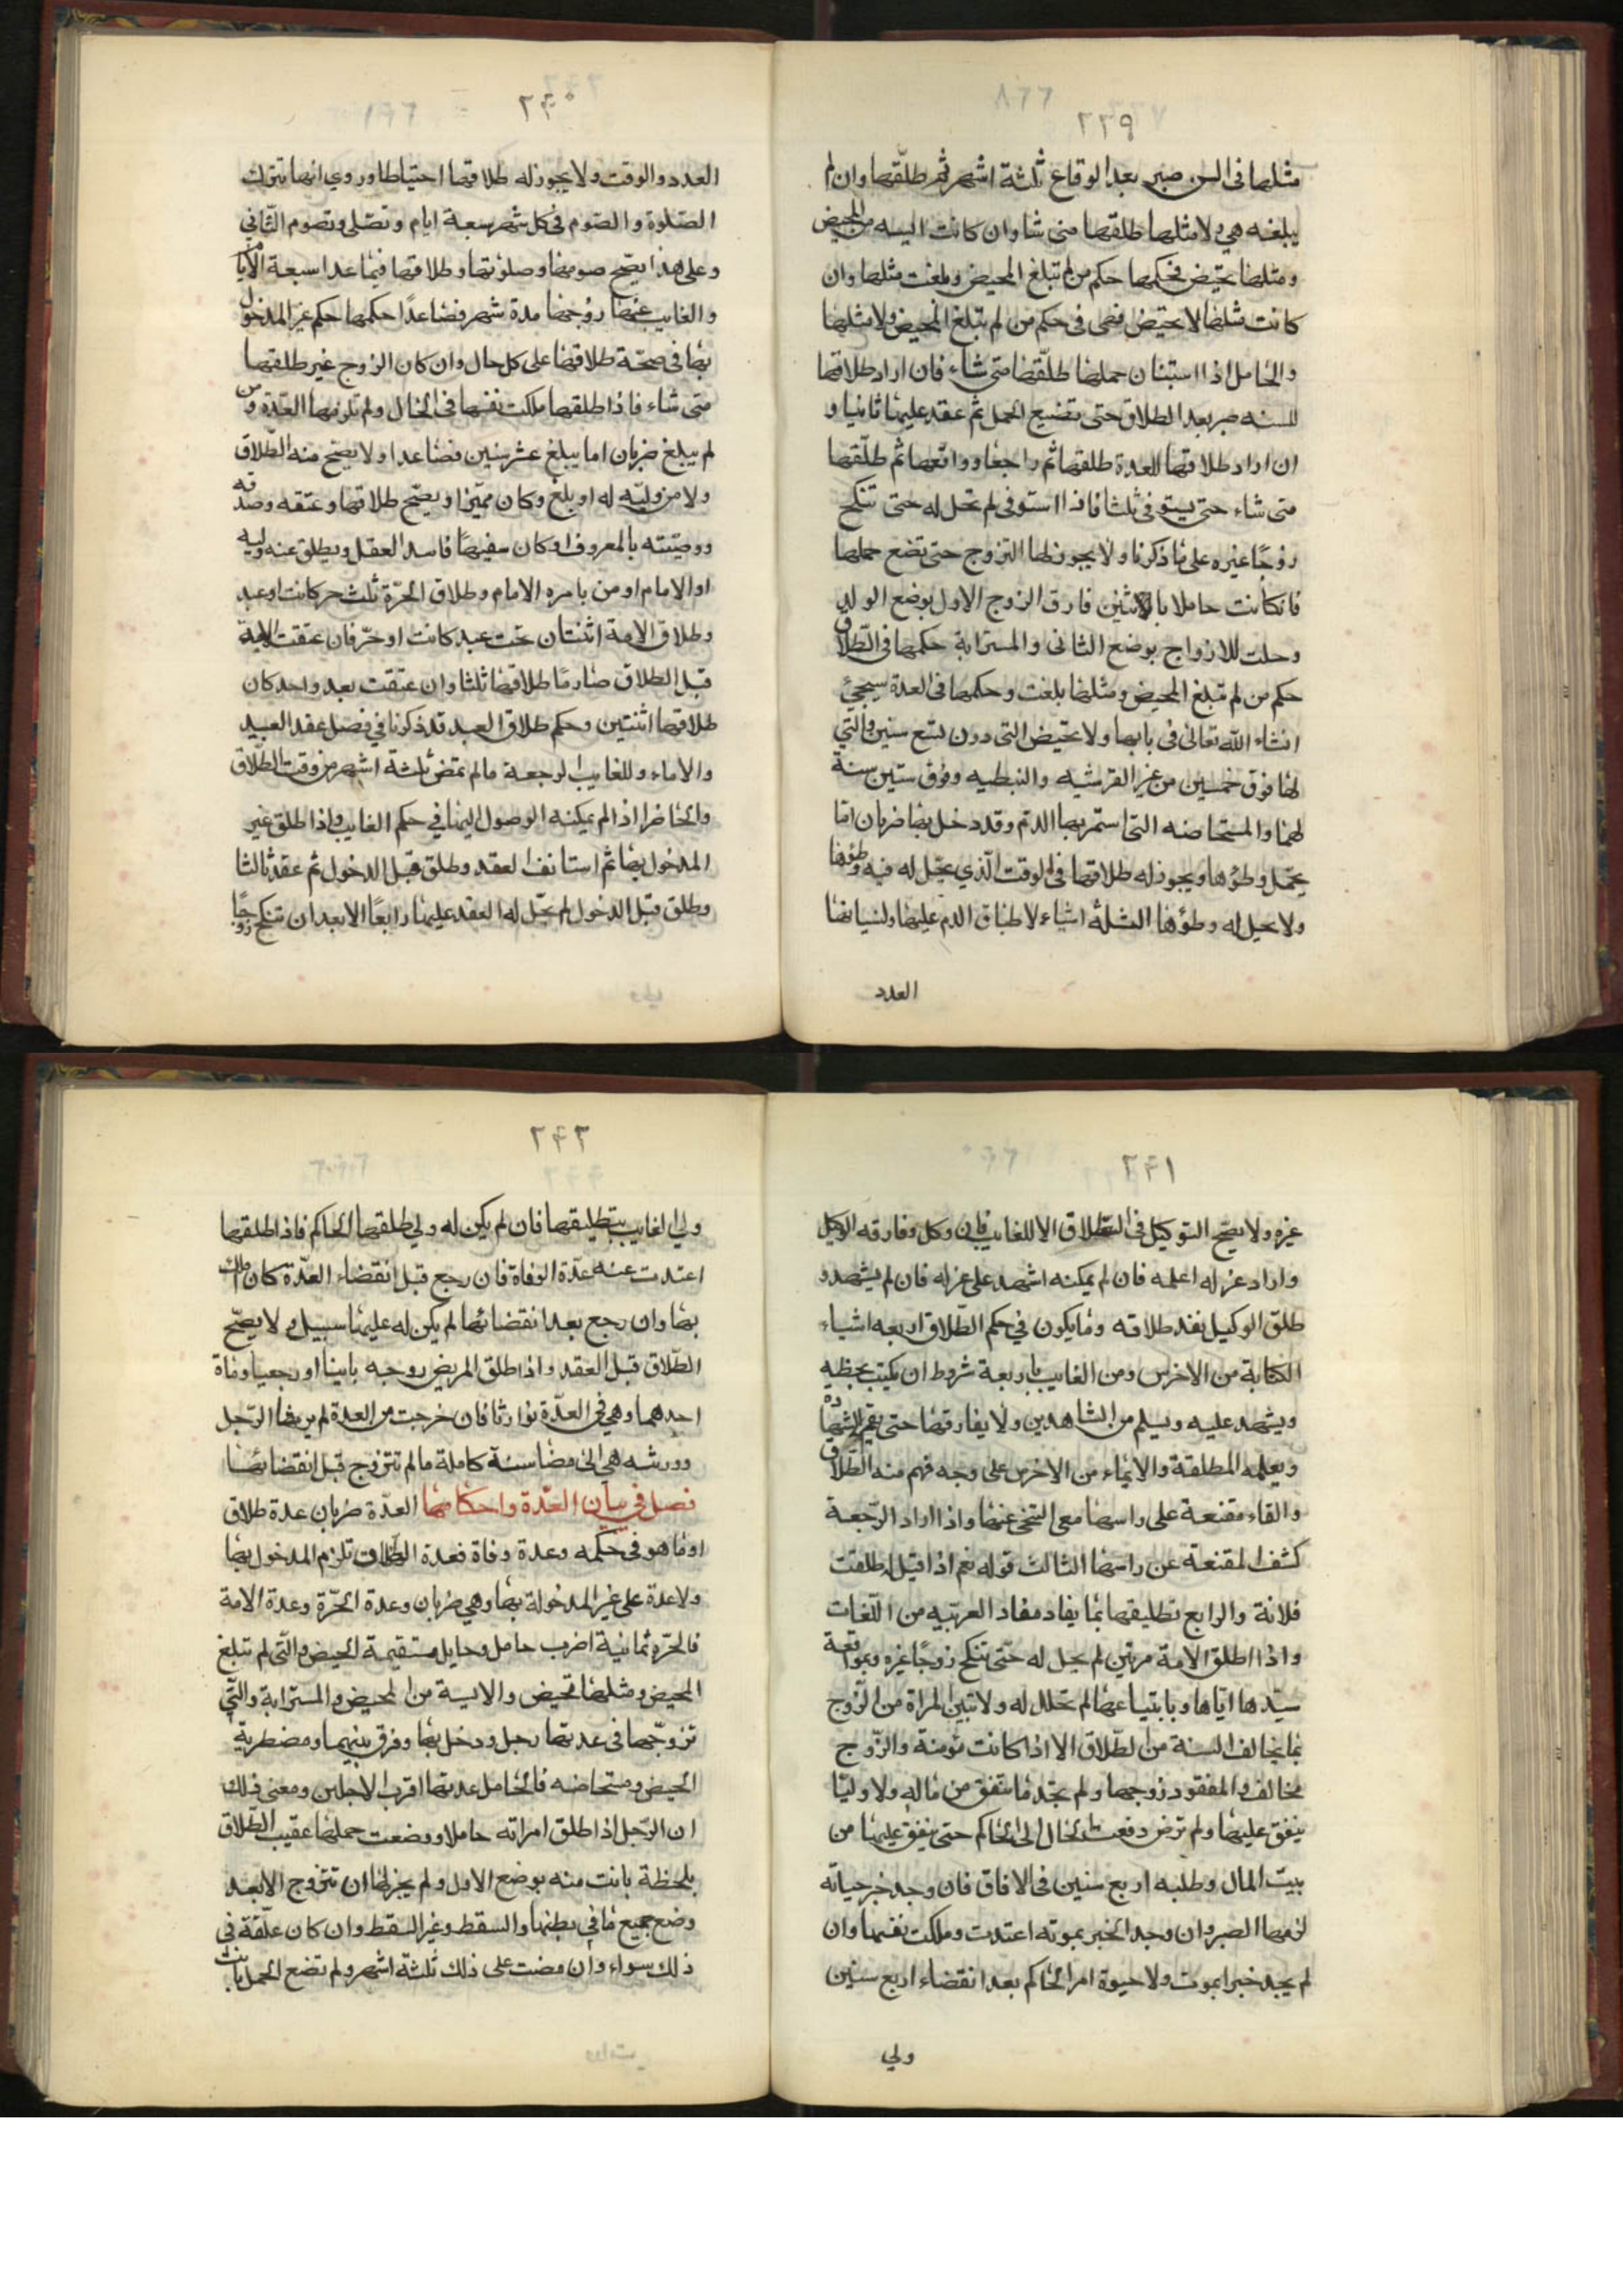 ٢٣٩
مثلها فى السن صبر بعد الوقاع ثلثة اشهر ثم طلّقها وان لم
يبلغه هي ولا مثلها طلقها متى شاء وان كانت اليسه من المحيض
ومثلها يحيض فحكمها حكم من لم تبلغ المحيض وبلغت مثلها وان
كانت مثلها لا يحيض فهى فى حكم من لم تبلغ المحيض ولا مثلها
والحامل اذا استبان حملها طلّقها متى شاء فان اراد طلاقها
للسنه صبر بعد الطلاق حتى تضيع الحمل ثم عقد عليها ثانيا و
ان اراد طلاقها للعدة طلقها ثم راجعا وواقعها ثم طلّقها
متى شاء حتى يستوفى ثلثا فاذا استوفى لم تحل له حتى تنكح
زوجًا غيره على ما ذكرنا ولا يجوز لها التزوج حتى تضع حملها
فان كانت حاملا بالاثنين فارق الزوج الاول بوضع الولد
وحلت للازواج بوضع الثانى والمسترابة حكمها فى الطّلاق
حكم من لم تبلغ المحيض ومثلها بلغت وحكمها فى العدة سيجيئ
انشاء اللّه تعالى فى بابها ولا تحيض التى دون تسع سنين والتي
لها فوق خمسين من غير القرشيه والنبطيه وفوق ستين سنة
لهما والمستحاضه التى استمر بها الدّم وقد دخل بها ضربان امّا
يحمل وطؤها ويجوز له طلاقها فى الوقت الّذي يحل له فيه وطؤها
ولا يحل له وطؤها الثلثة اشياء لاطباق الدم عليها ولنسيانها
العدد
٢٤٠
العدد والوقت ولا يجوز له طلاقها احتياطا وروي انها تترك
الصّلوة والصّوم فى كل شهر سبعة ايام وتصّلى وتصوم الثّاني
وعلى هذا يصّح صومها وصلوتها وطلاقها فيما عدا سبعة الايام
والغايب عنها زوجها مدة شهر فصاعدًا حكمها حكم غير المدخول
بها فى صحّة طلاقها على كل حال وان كان الزوج غير طلقها
متى شاء فاذا طلقها ملكت نفسها فى الحال ولم تلزمها العدّة ومن
لم يبلغ ضربان اما يبلغ عشر سنين فصاعدا ولا يصّح منه الطّلاق
ولا من وليّه له او بلغ وكان مميّزا ويصّح طلاقها وعتقه وصدقه
ووصيّته بالمعروف او كان سفيهًا فاسد العقل ويطلق عنه وليه
او الامام او من يامره الامام وطلاق الحرّة ثلث حر كانت او عبد
وطلاق الامة اثنتان تحت عبد كانت او حرّ فان عتقت الامة
قبل الطلاق صار مّا طلاقها ثلثا وان عتقت بعد واحد كان
طلاقها اثنتين وحكم طلاق العبد قد ذكرنا في فصل عقد العبيد
والاماء وللغايب الرجعة مالم تمض ثلثة اشهر من وقت الطّلاق
والحاضر اذا لم يمكنه الوصول اليها في حكم الغايب واذا طلق غير
المدخول بها ثم استانف العقد وطلق قبل الدخول ثم عقد ثالثا
وطلق قبل الدخول لم يحّل له العقد عليها رابعًا الا بعد ان تنكح زوجًا
٢٤١
غيره ولا يصّح التوكيل فى الطّلاق الا للغايب فان وكل وفارقه الوكيل
واراد عزله اعلمه فان لم يمكنه اشهد على عزله فان لم يشهد و
طلّق الوكيل نفذ طلاقه وما يكون في حكم الطّلاق اربعه اشياء
الكتابة من الاخرس ومن الغايب باربعة شروط ان يكتب بخطه
ويشهد عليه ويسلم من الشاهدين ولا يفارقها حتى يقيم الشهادة
ويعلمه المطلقة والايماء من الاخرس على وجه فهم منه الطّلاق
والقاء مقنعة على راسها مع التنحى عنها واذا اراد الرّجعة
كشف المقنعة عن راسها الثالث قوله نعم اذا قيل له طلقت
فلانة والرابع تطليقها بما يفاد مفاد العربّيه من اللّغات
واذا طلق الامة مرتين لم يحل له حتّى تنكح زوجًا غيره وبمواقعة
سيّدها ايّاها وبابتياعها لم تحلل له ولا تبين المراة من الزّوج
بما يخالف السنة من الطّلاق الا اذا كانت مؤمنة والزّوج
مخالف والمفقود زوجها ولم تجد ما تنفق من ماله ولا وليّا
ينفق عليها ولم ترض دفعت الحال الى الحاكم حتى ينفق عليها من
بيت المال وطلبه اربع سنين فى الافاق فان وجد خبر حياته
لزمها الصبر وان وجد الخبر بموته اعتدت وملكت نفسها وان
لم يجد خبرا بموت ولا حيوة امر الحاكم بعد انقضاء اربع سنين
ولي
٢٤٢
ولي الغايب بتطليقها فان لم يكن له ولي طلقها الحاكم فاذا طلقها
اعتدت عنه عدّة الوفاة فان رجع قبل انقضاء العدّة كان املك
بها وان رجع بعد انقضائها لم يكن له عليها سبيل ولا يصّح
الطّلاق قبل العقد واذا طلق المريض زوجه باينا او رجعيا ومات
احدهما وهي فى العدّة توارثا فان خرجت من العدة لم يرثها الرّجل
وورثه هي الى مضا سنة كاملة مالم تتزوج قبل انقضائها
فصل في بيان العدّة واحكامها العدّة ضربان عدة طلاق
او ما هو فى حكمه وعدة وفاة فعدة الطّلاق تلزم المدخول بها
ولا عدة على غير المدخولة بها وهي ضربان وعدة الحرّة وعدة الامة
فالحرّه ثمانية اضرب حامل وحايل مستقيمة الحيض والّتى لم تبلغ
المحيض ومثلها تحيض والايسة من المحيض والمسترابة والتّي
تزوجّها فى عدتها رجل ودخل بها وفرق بينهما ومضطربة
الحيض ومستحاضه فالحامل عدتها اقرب الاجلين ومعنى ذلك
ان الرّجل اذا طلق امراته حاملا ووضعت حملها عقيب الطّلاق
بلحظة بانت منه بوضع الاول ولم يجز لها ان تتزوج الا بعد
وضع جميع ما في بطنها والسقط وغير السقط وان كان علّقة فى
ذلك سواء وان مضت على ذلك ثلثة اشهر ولم تضع الحمل بانت